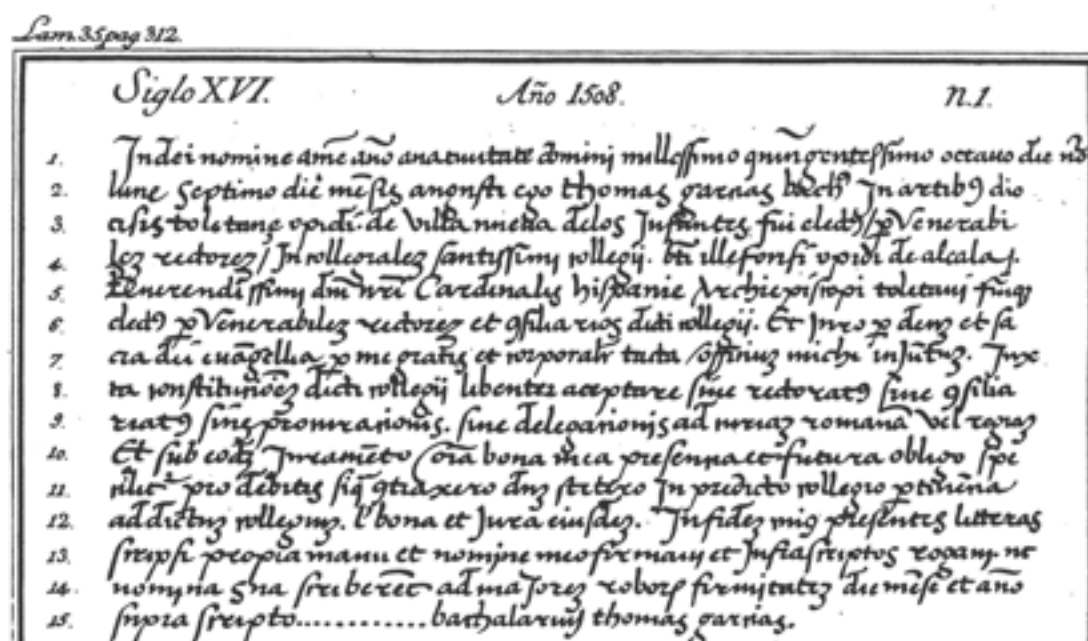 Lam. 35 pag 312.
Siglo XVI. Año 1508. N.1.
1. In dei nomine amē año anativitate domini millessimo quingentessimo octavo die
2. lune septimo die mēsis augusti ego thomas garcias In artibꝯ dio
3. cesis toletane opidi de villa nueba delos Infantes fui electꝯ / ꝑ Venerabi
4. les rectores / In collegiales santissimi collegii. bti illefonsi opidi de alcala
5. Reverendissimi dm̄ nr̄i Cardinalis hispanie Archiepiscopi toletani
6. electꝯ ꝑ Venerabiles rectores et ꝯsiliarios dicti collegii. Et Juro ꝑ deuz et sa
7. cra dei evāgellia ꝑ me gratis et corporalr̄ tacta officiuz michi inJūtuz. Jux
8. ta constitucioēz dicti collegii libenter aceptare sive rectoratꝯ sive ꝯsilia
9. riatꝯ sive procuracionis. sive delegacionis ad curiaz romanā vel regiaz
10. Et sub eodē Juramēto oīa bona mea presencia et futura obligo spē
11. pro debitis siq̄ ꝯtraxero duz stetero In predicto collegio
12. ad dictuz collegiuz. bona et Jura eiusdez. In fidez cuiꝯ presentes litteras
13. scripsi propia manu et nomine meo firmavi et Infrascriptos rogavi ut
14. nomina sua scriberēt ad maJorez firmitatez die mēse et año
15. supra scripto............bachalarius thomas garcias.